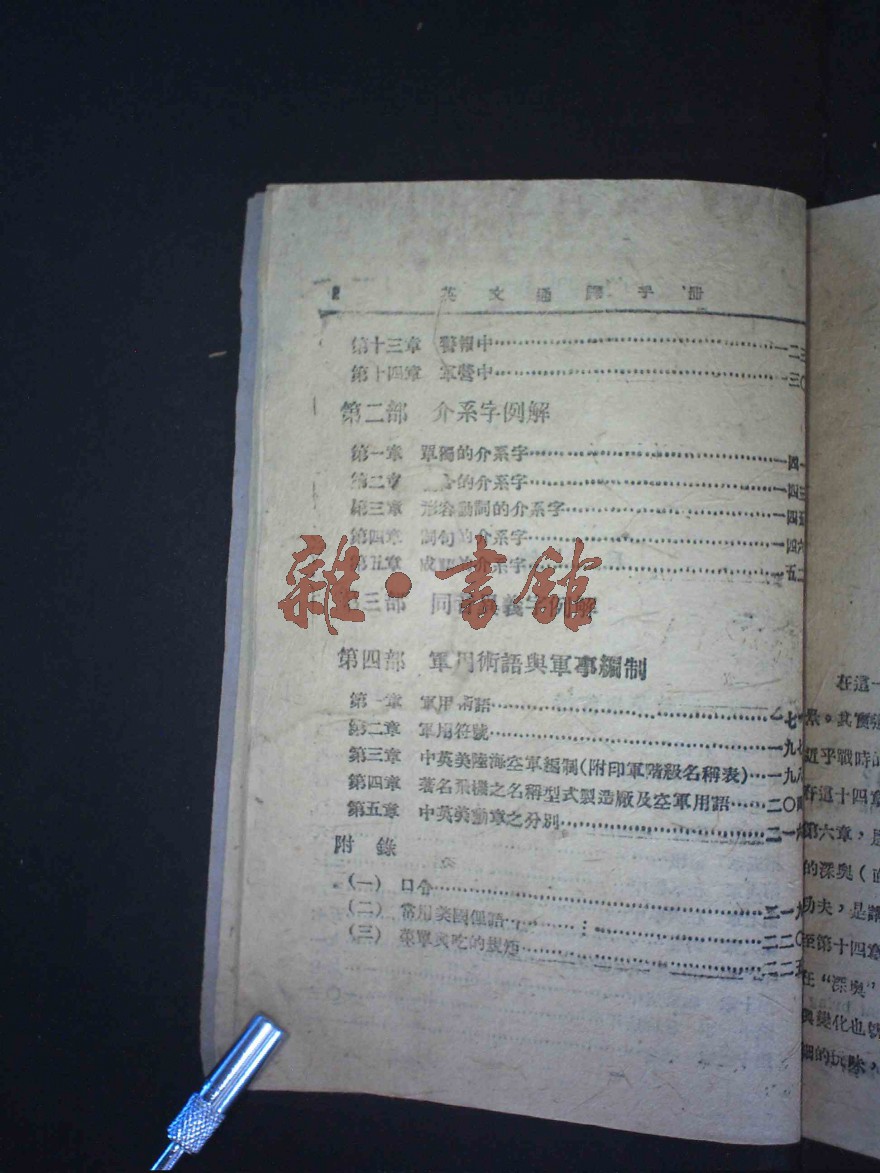 2 英文通譯手冊
第十三章 警報中……一二三
第十四章 軍營中……一三〇
第二部 介系字例解
第一章 單獨的介系字……一四一
第二章 合的介系字……一四三
第三章 形容動詞的介系字……一四五
第四章 詞句的介系字……一四六
第五章 成 的介系字……一五二
第三部 同音異義字例解
第四部 軍用術語與軍事編制
第一章 軍用術語……一七
第二章 軍用符號……一九七
第三章 中英美陸海空軍編制(附印軍階級名稱表)…一九八
第四章 著名飛機之名稱型式製造廠及空軍用語……二〇
第五章 中英美勳章之分別……二一六
附錄
(一) 口令……二一九
(二) 常用美國俚語……二二〇
(三) 菜單與吃的規矩……二二五
雜·書館
在這一
景。其實
近乎戰時
在這十四章
第六章,是
的深奧(
功夫,是
至第十四章
在“深奧”
與變化也
細的玩味,